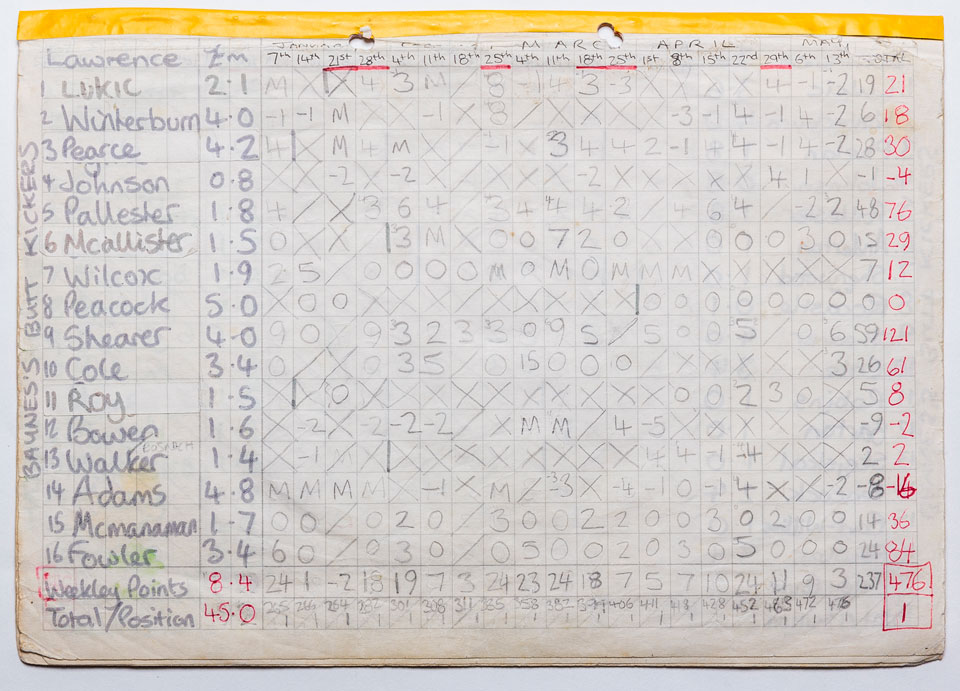 JANUARY MARCH APRIL MAY
Lawrence £m 7th 14th 21st 28th 4th 11th 18th 25th 4th 11th 18th 25th 1st 8th 15th 22nd 29th 6th 13th TOTAL
BAYNESS BUTT KICKERS
1 LUKIC 2.1 M X X 4 3 M 8 -1 4 3 -3 4 -1 -2 19 21
2 Winterburn 4.0 -1 -1 M -1 8 -3 -1 4 -1 4 -2 6 18
3 Pearce 4.2 4 M 4 M -1 X 3 4 4 2 -1 4 4 -1 4 -2 28 30
4 Johnson 0.8 -2 X -2 -2 X X X X X 4 1 -1 -4
5 Pallester 1.8 4 X 3 6 4 3 4 4 4 2 4 6 4 -2 2 48 76
6 Mcallister 1.5 0 X X 3 M X 0 0 7 2 0 0 0 0 3 0 15 29
7 Wilcox 1.9 2 5 0 0 0 0 0 M 0 M 0 M M M X X X X X 7 12
8 Peacock 5.0 X 0 0 X X X X X X X X X 0 0 0 0 0 0 0 0 0
9 Shearer 4.0 9 0 9 3 2 3 3 0 9 5 5 0 0 5 0 6 59 121
10 Cole 3.4 0 X 0 3 5 0 15 0 0 0 X X X X X 3 26 61
11 Roy 1.5 X 0 X X X X X X X X X 0 0 2 3 0 5 8
12 Bowen 1.6 -2 X -2 -2 -2 M M 4 -5 -9 -2
13 Walker 1.4 -1 X X X X X X X X 4 4 -1 -4 2 2
14 Adams 4.8 M M M M -1 M -3 X -4 -1 0 -1 4 X X -2 -8 -16
15 Mcmanaman 1.7 0 0 0 2 0 3 0 0 2 2 0 0 3 0 2 0 0 14 36
16 Fowler 3.4 6 0 0 3 0 0 5 0 0 2 0 3 0 5 0 0 0 24 84
Weekley Points 8.4 24 1 -2 18 19 7 3 24 23 24 18 7 5 7 10 24 11 9 3 237 476
Total/Position 45.0 265 266 264 282 301 308 311 335 358 382 399 406 411 418 428 452 463 472 476 1